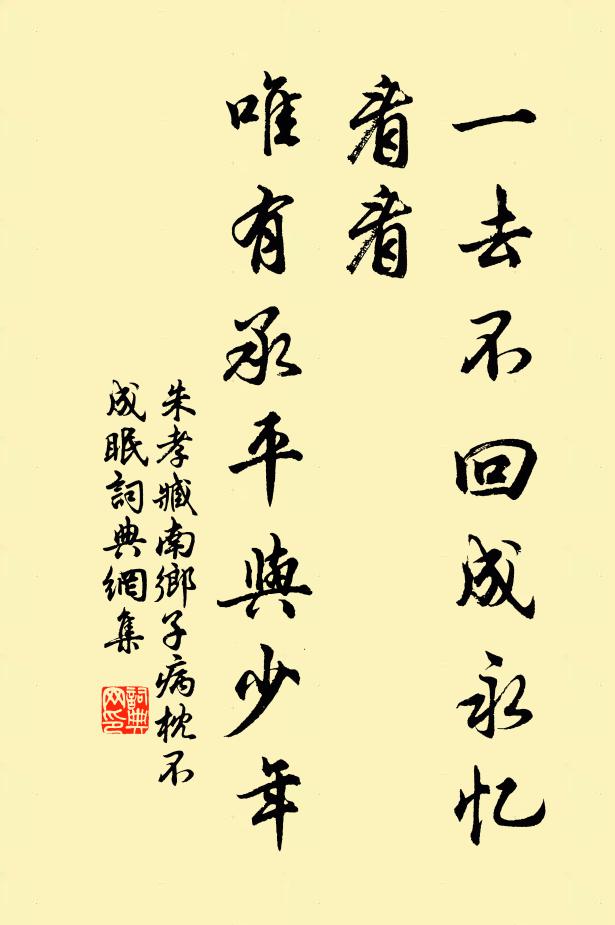 一去不回成永忆
看看
唯有承平與少年
朱孝臧南鄉子病枕不
成眠詞典網集
詞典網印